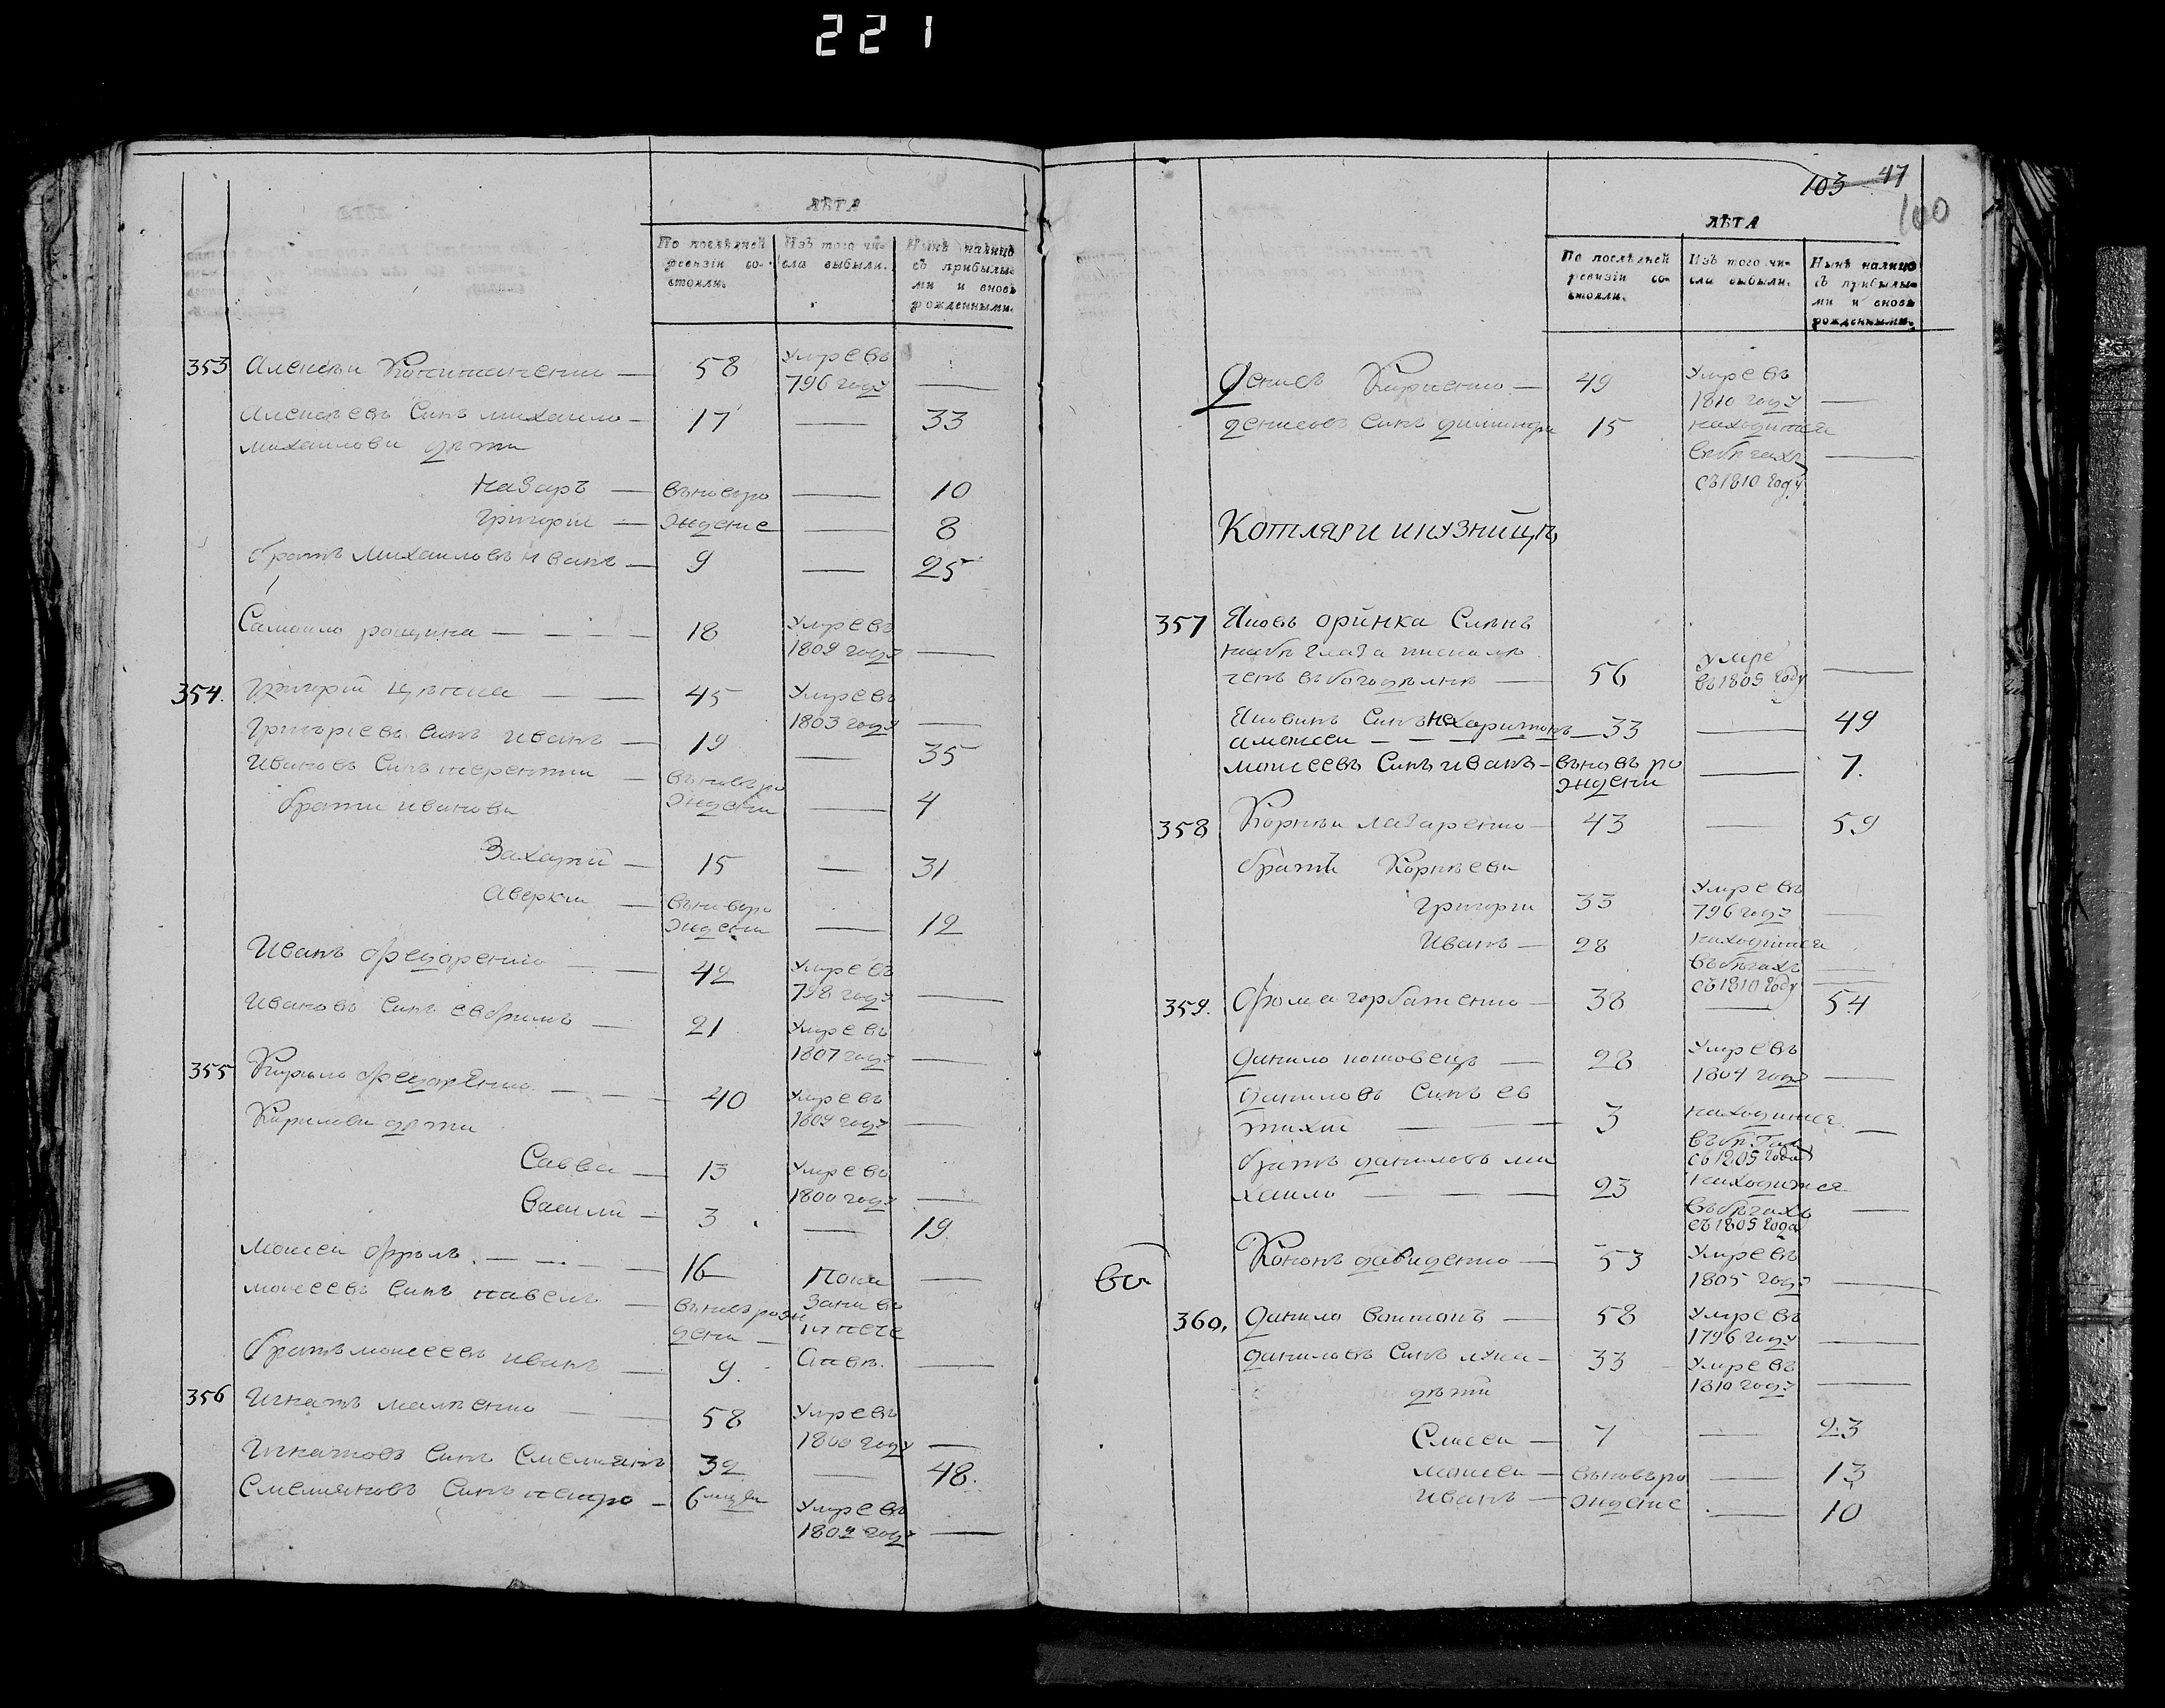 221
ЛѢТА
По послѣдней ревизіи со- стояли.
Изъ того чи- сла выбыли.
Нынѣ налицо съ прибылы- ми и вновь рожденными.
353 Алексѣи — 58 Умре въ 796 году —
Алексѣевъ Синъ михаило — 17 — 33
михаилови дѣти
Назаръ — вънов ро — 10
Григорiи — жденіе — 8
братъ михаиловъ иванъ — 9 — 25
Самоило рощина — 18 Умре въ 1809 году —
354. Григорiй — 45 Умре въ 1803 году —
Григорiевъ синъ иванъ — 19 — 35
Ивановъ Синъ терентiи — въновъ ро ждени — 4
брати иванови
Захарiй — 15 — 31
Аверкiи — вънов ро ждени — 12
Иванъ федоренко — 42 Умре въ 798 году —
Ивановъ синъ евфримъ — 21 Умре въ 1807 году —
355 Кирило федоренко — 40 Умре въ 1809 году —
Кирилови дѣти
Савва — 13 Умре въ 1800 году —
Васили — 3 — 19
Моисеи фролъ — 16 Пока —
моисеевъ синъ павелъ — вновъ рож дени — зани въ
братъ моисеевъ иванъ — 9 —
356 Игнатъ — 58 Умре въ 1800 году —
Игнатовъ синъ Емелиянъ 32 — 48.
Емелияновъ Синъ петро — 6 Умре въ 1802 году —
103 47
100
ЛѢТА
По послѣдней ревизіи со- стояли.
Изъ того чи- сла выбыли.
Нынѣ налицо съ прибылы- ми и вновь рожденными.
Денисъ Кириенко — 49 Умре въ 1810 году —
денисовъ синъ димитри 15 находится въ бѣгахъ съ 1810 году —
Котляри и кузницѣ
357 Яковъ оринка Слѣпъ
на обѣ глаза
въ богодѣлнѣ — 56 умре въ 1805 году —
Яковинъ Синъ не харитонъ
а моисеи — 33 — 49
моисеевъ Синъ иванъ — въновъ ро ждени — 7.
358 Корнѣи лазаренко — 43 — 59
братѣ Корнѣеви
григорги 33 Умре въ 796 году —
Иванъ — 28 находится въ бѣгахъ съ 1810 году —
359. Фома горбатенко — 38 — 54
данило — 28 Умре въ 1804 году —
даниловъ синъ ев
тихiи — 3 находится въ бѣгахъ съ 1805 года —
братъ даниловъ ми
хаило — 23 находится въ бѣгахъ съ 1805 года —
Кононъ давиденко — 53 Умре въ 1805 году —
360. Данило — 58 Умре въ 1796 году —
даниловъ синъ лука — 33 Умре въ 1810 году —
дѣти
— 7 — 23
моисеи — въновъ ро — 13
иванъ — ждение — 10